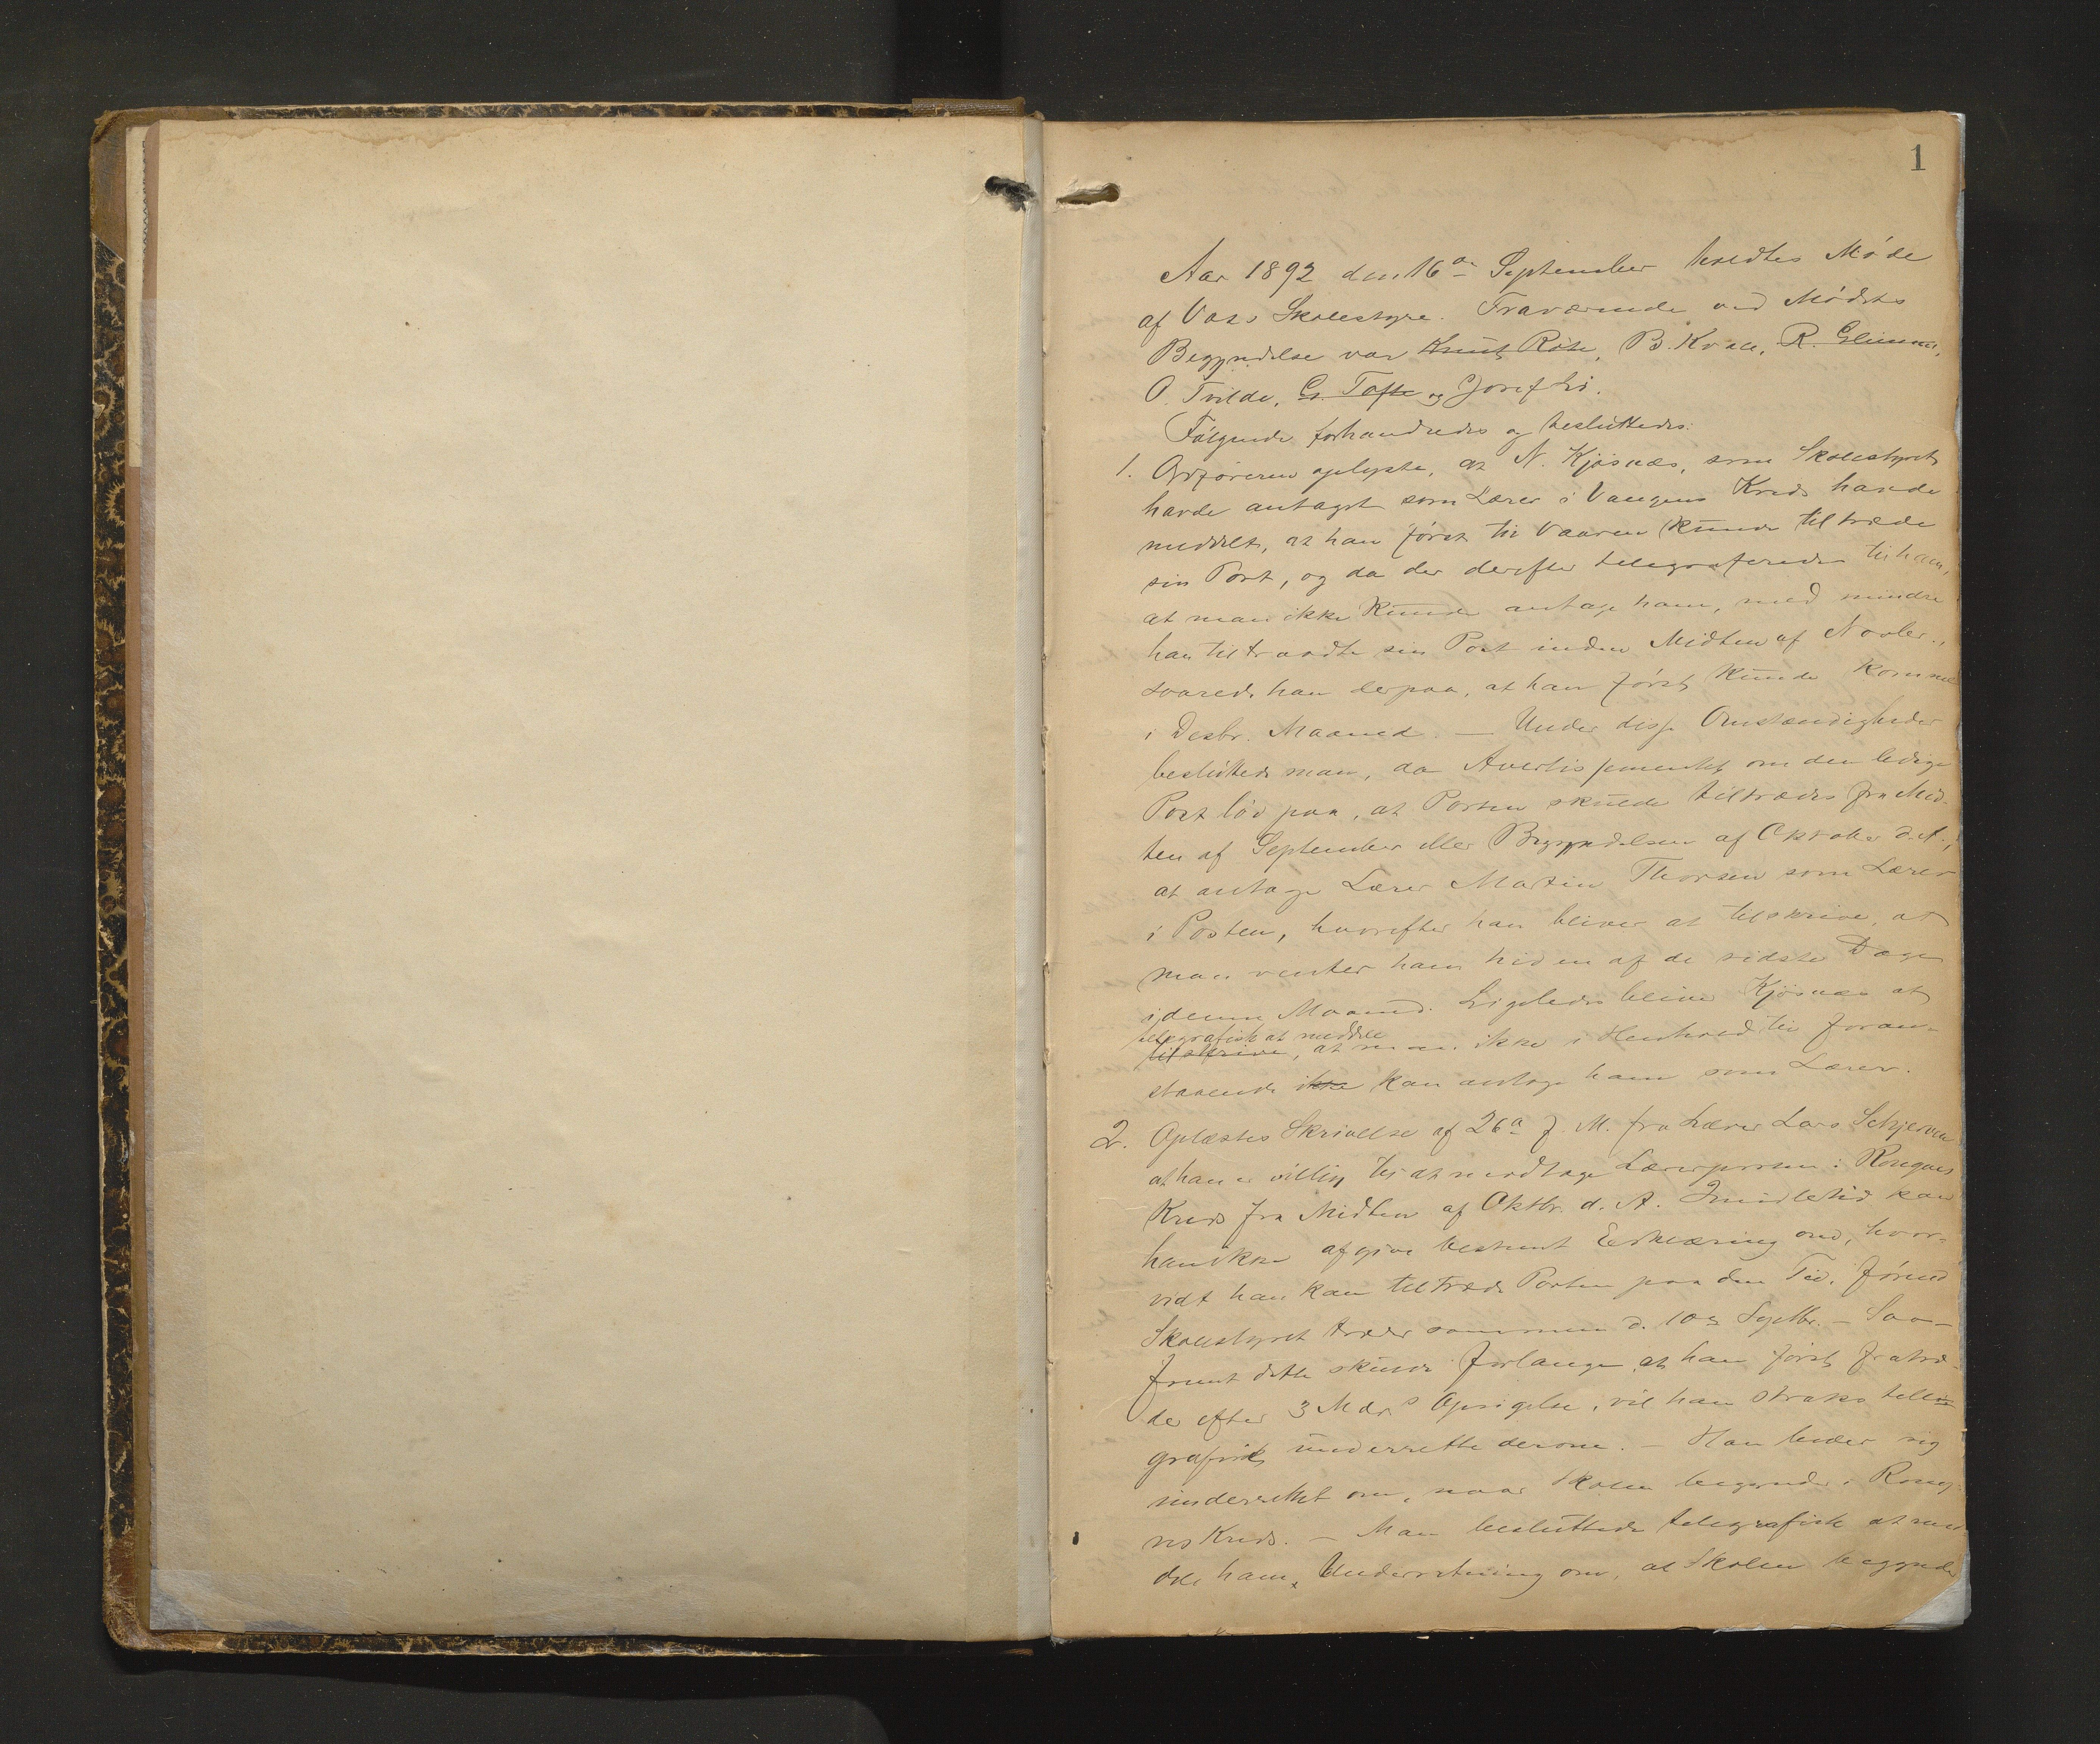 1
Aar 1892 den 16de September holdtes Møde
af Voss Skolestyre. Fraværende ved Mødets
Begyndelse var Knut Røte, B. Kvale, R. Glimme,
O. Tvilde, G. Tofte og Josef Li.
Følgende forhandledes og besluttedes:
1. Ordføreren oplyste, at N. Kjösnæs, som Skolestyret
havde antaget som Lærer i Vangens Kreds havde
meddelt, at han først til Vaaren kunde tiltræde
sin Post, og da der derefter telegraferedes til ham,
at man ikke kunde antage ham, med mindre
han tiltraadte sin Post inden Midten af Novbr.,
svarede han derpaa, at han først kunde komme
i Desbr. Maaned. — Under disse Omstændigheder
besluttede man, da Avertissementet om den ledige
Post lød paa, at Posten skulde tiltrædes fra Mid-
ten af September eller Begyndelsen af Oktober d. A.,
at antage Lærer Martin Thorsen som Lærer
i Posten, hvorefter han bliver at tilskrive, at
man venter ham hid en af de sidste Dage
i denne Maaned. Ligeledes bliver Kjösnæs at
telegrafisk at meddele
tilskrive, at man ikke i Henhold til foran-
staaende ikke kan antage ham som Lærer.
2. Oplæstes Skrivelse af 26de f. M. fra Lærer Lars Schjerven
at han er villig til at modtage Lærerposten i Rongves
Kreds fra Midten af Oktbr. d. A. Imidlertid kan
han ikke afgive bestemt Erklæring om, hvor-
vidt han kan tiltræde Posten paa den Tid, førend
Skolestyret træder sammen d. 10de Septbr. – Saa-
fremt dette skulde forlange, at han først fratræ-
der efter 3 Mdrs Opsigelse, vil han straks tele
grafisk underrette derom. – Han beder sig
underrettet om, naar Skolen begynder i Rong
ves Kreds. – Man besluttede telegrafisk at med
dele ham Underretning om, at Skolen begynder